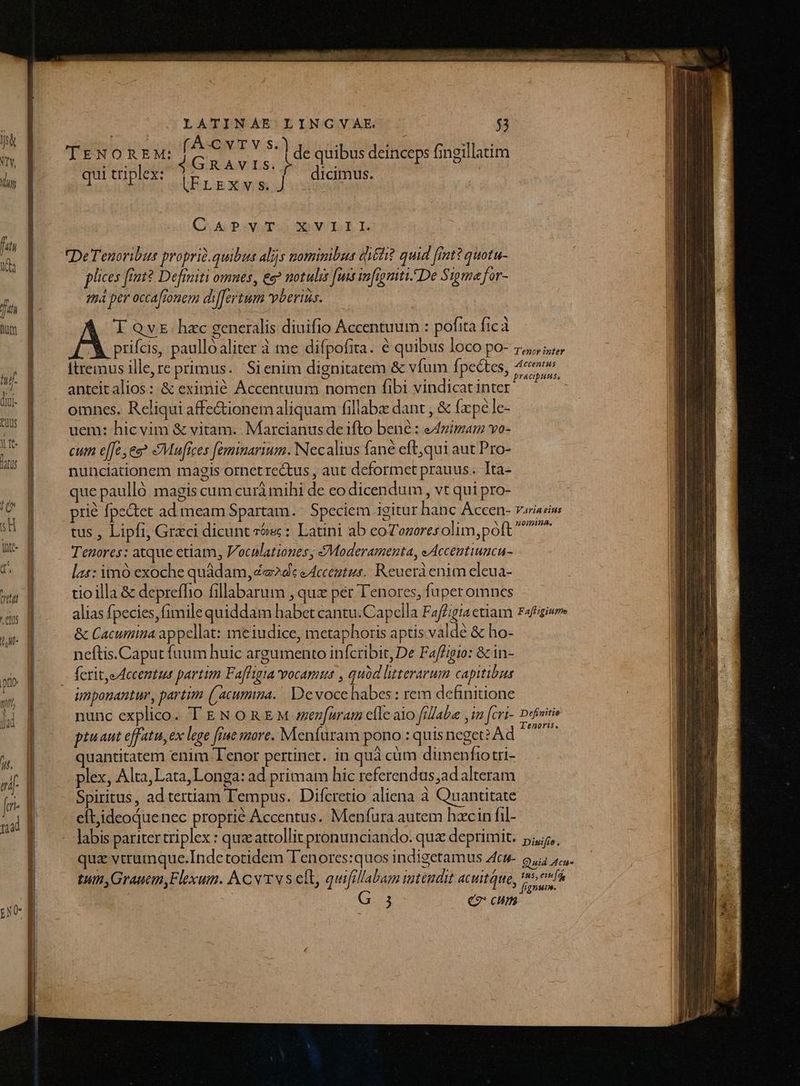 LATINAE LINGVAE. 53
TENOREM: ACVTVS. de quibus deinceps singillatim
qui triplex: GRAVIS. dicimus.
FLEXVS.
CAPVT XVIII.
De Tenoribus propriè. quibus alijs nominibus dicti? quid sint? quotu-
plices sint? Definiti omnes, & notulis suis insigniti. De Sigmæ for-
mâ per occasionem dissertum vberiùs.
ATQVE hæc generalis diuisio Accentuum : posita sic à
priscis, paullò aliter à me disposita. è quibus loco po-
stremus ille, re primus. Si enim dignitatem & vsum spectes,
anteit alios : & eximiè Accentuum nomen sibi vindicat inter
omnes. Reliqui affectionem aliquam sillabæ dant , & sæpè le-
uem : hic vim & vitam. Marcianus de isto benè : Animam vo-
cum esse, & Musices seminarium. Nec alius sanè est, qui aut Pro-
nunciationem magis ornet rectus, aut deformet prauus. Ita-
que paullò magis cum curâ mihi de eo dicendum , vt qui pro-
priè spectet ad meam Spartam. Speciem igitur hanc Accen-
tus , Lipsi, Græci dicunt τόνες : Latini ab eo Tonores olim, pòst
Tenores : atque etiam, Voculationes, Moderamenta, Accentiuncu-
las : imò exoche quâdam, ἁπλῶς Accentus. Reuerà enim eleua-
tio illa & depressio sillabarum , quæ per Tenores, super omnes
alias species, simile quiddam habet cantu. Capella Fastigia etiam
& Cacumina appellat : me iudice, metaphoris aptis valdè & ho-
nestis. Caput suum huic argumento inscribit, De Fastigio : & in-
serit, Accentus partim Fastigia vocamus , quòd litterarum capitibus
imponantur, partim Cacumina. De voce habes : rem definitione
nunc explico. TENOREM mensuram esse aio sillabæ , in scri-
ptu aut effatu, ex lege siue more. Mensuram pono : quis neget? Ad
quantitatem enim Tenor pertinet. in quâ cùm dimensio tri-
plex, Alta, Lata, Longa : ad primam hic referendus, ad alteram
Spiritus , ad tertiam Tempus. Discretio aliena à Quantitate
est, ideoque nec propriè Accentus. Mensura autem hæc in sil-
labis pariter triplex : quæ attollit pronunciando. quæ deprimit.
quæ vtrumque. Inde totidem Tenores : quos indigetamus Acu-
tum, Grauem, Flexum. ACVTVS est, qui sillabam intendit acuitque,
G 3 & cum
Tenor inter
Accentus
præcipuus,
Varia eius
nomina.
Fastigium
Definitio
Tenoris.
Diuisio.
Quid Acu-
tus, eiusque
signum.